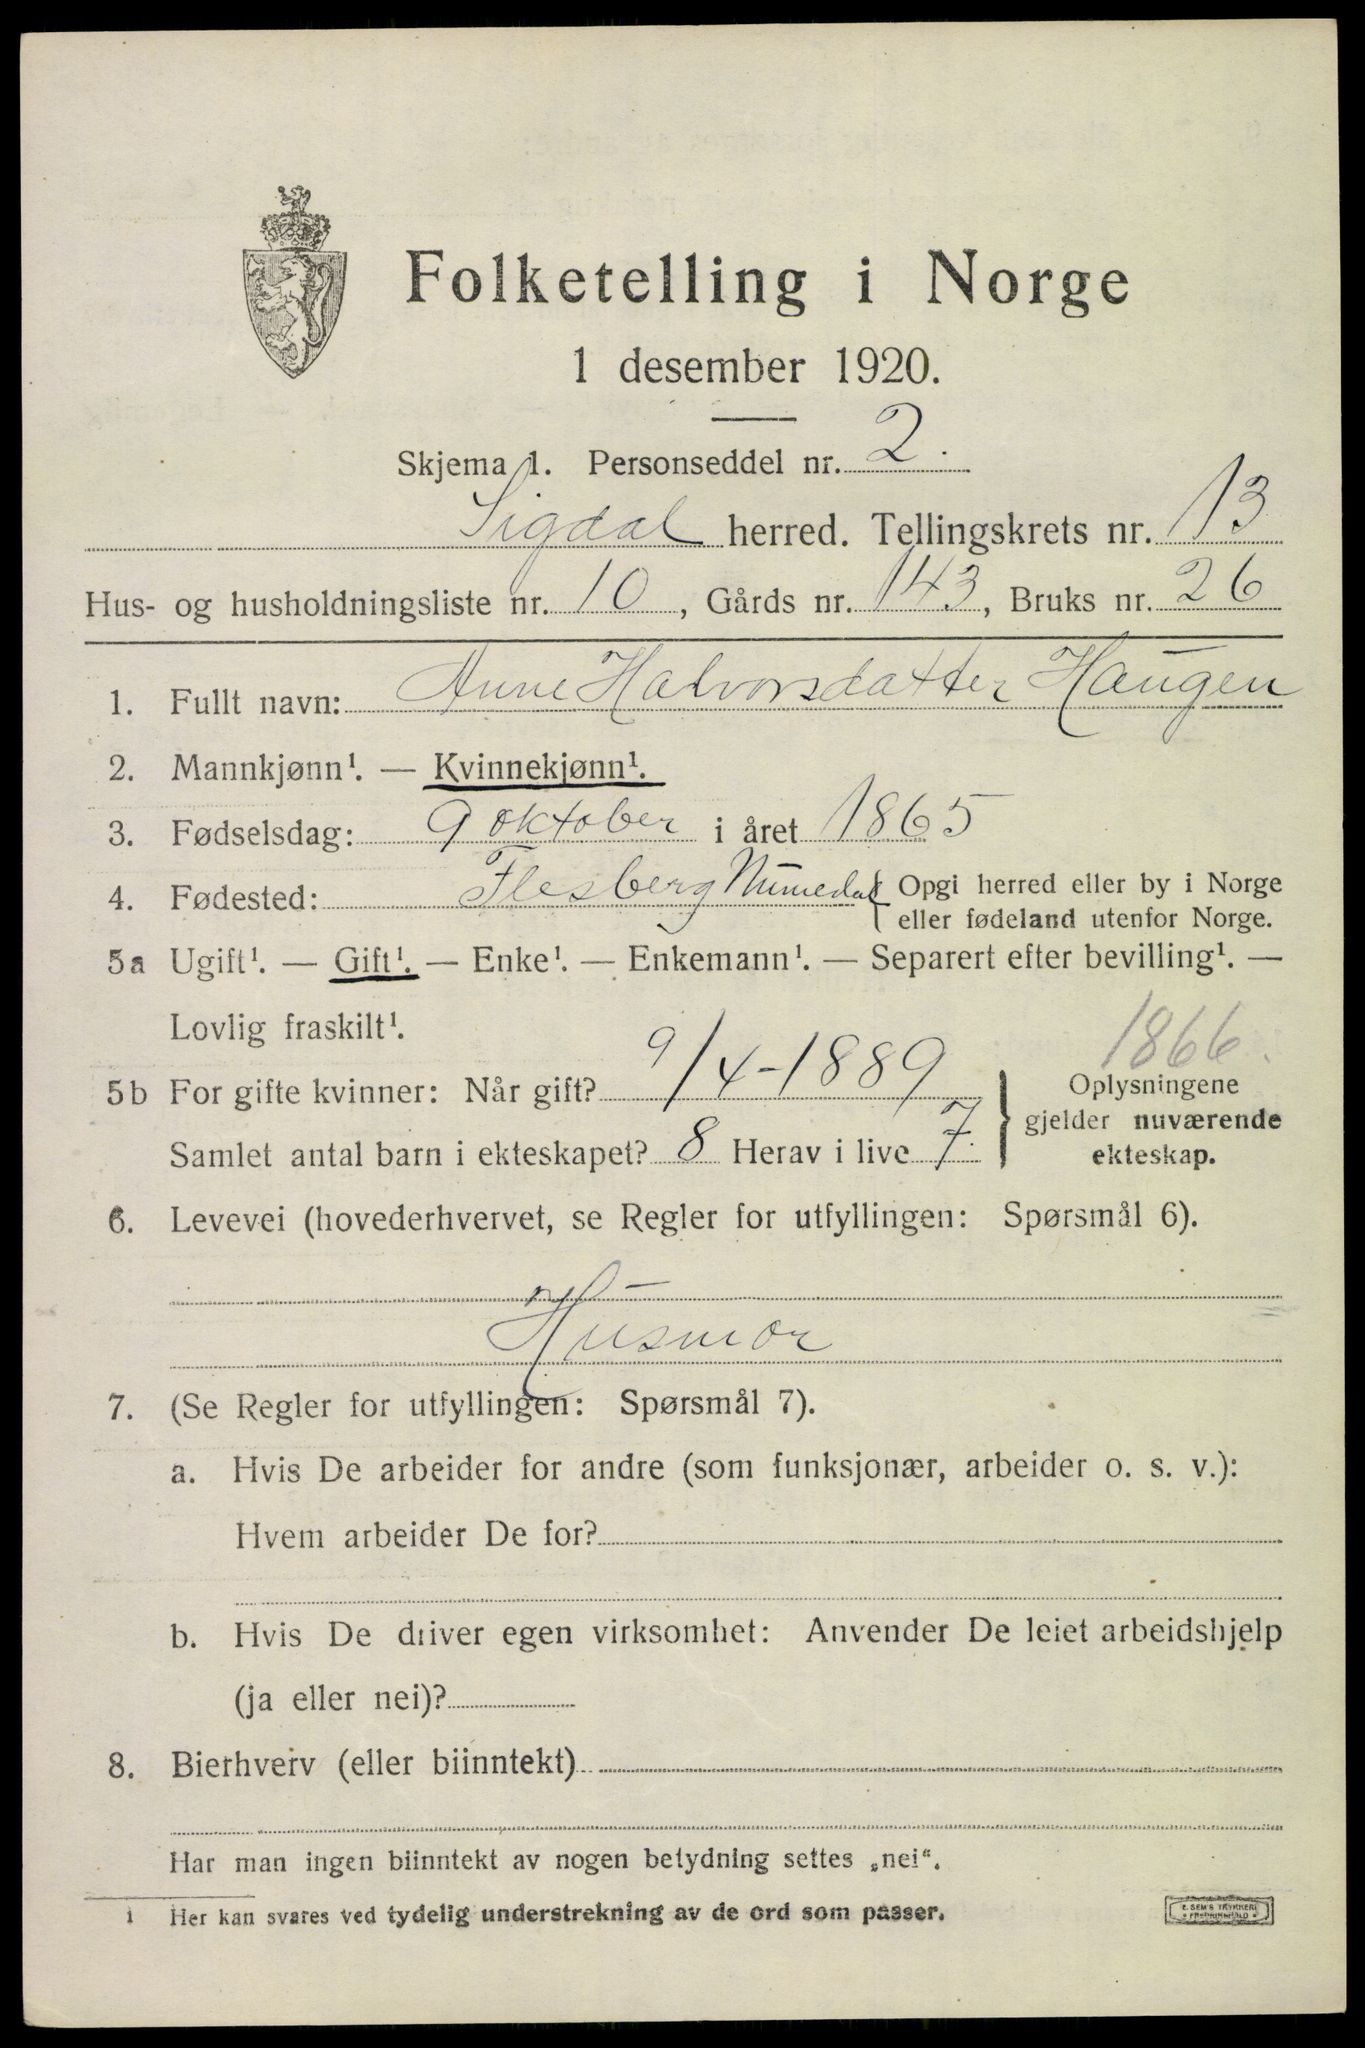 Folketelling i Norge
1 desember 1920.
Skjema 1. Personseddel nr. 2.
Sigdal herred. Tellingskrets nr. 13
Hus- og husholdningsliste nr. 10, Gårds nr. 143, Bruks nr. 26
1. Fullt navn: Anne Halvorsdatter Haugen
2. Mannkjønn¹. — Kvinnekjønn¹.
3. Fødselsdag: 9 oktober i året 1865
4. Fødested: Flesberg Numedal { Opgi herred eller by i Norge
eller fødeland utenfor Norge.
5a Ugift¹. — Gift¹. — Enke¹. — Enkemann¹. — Separert efter bevilling¹. —
Lovlig fraskilt¹.
1866.
5b For gifte kvinner: Når gift? 9/4-1889
Samlet antal barn i ekteskapet? 8 Herav i live 7.
} Oplysningene
gjelder nuværende
ekteskap.
6. Levevei (hovederhvervet, se Regler for utfyllingen: Spørsmål 6).
Husmor
7. (Se Regler for utfyllingen: Spørsmål 7).
a. Hvis De arbeider for andre (som funksjonær, arbeider o. s. v.):
Hvem arbeider De for?
b. Hvis De driver egen virksomhet: Anvender De leiet arbeidshjelp
(ja eller nei)?
8. Bierhverv (eller biinntekt)
Har man ingen biinntekt av nogen betydning settes „nei“.
1 Her kan svares ved tydelig understrekning av de ord som passer.
E. SEM'S TRYKKERI
FREDRIKSHALD